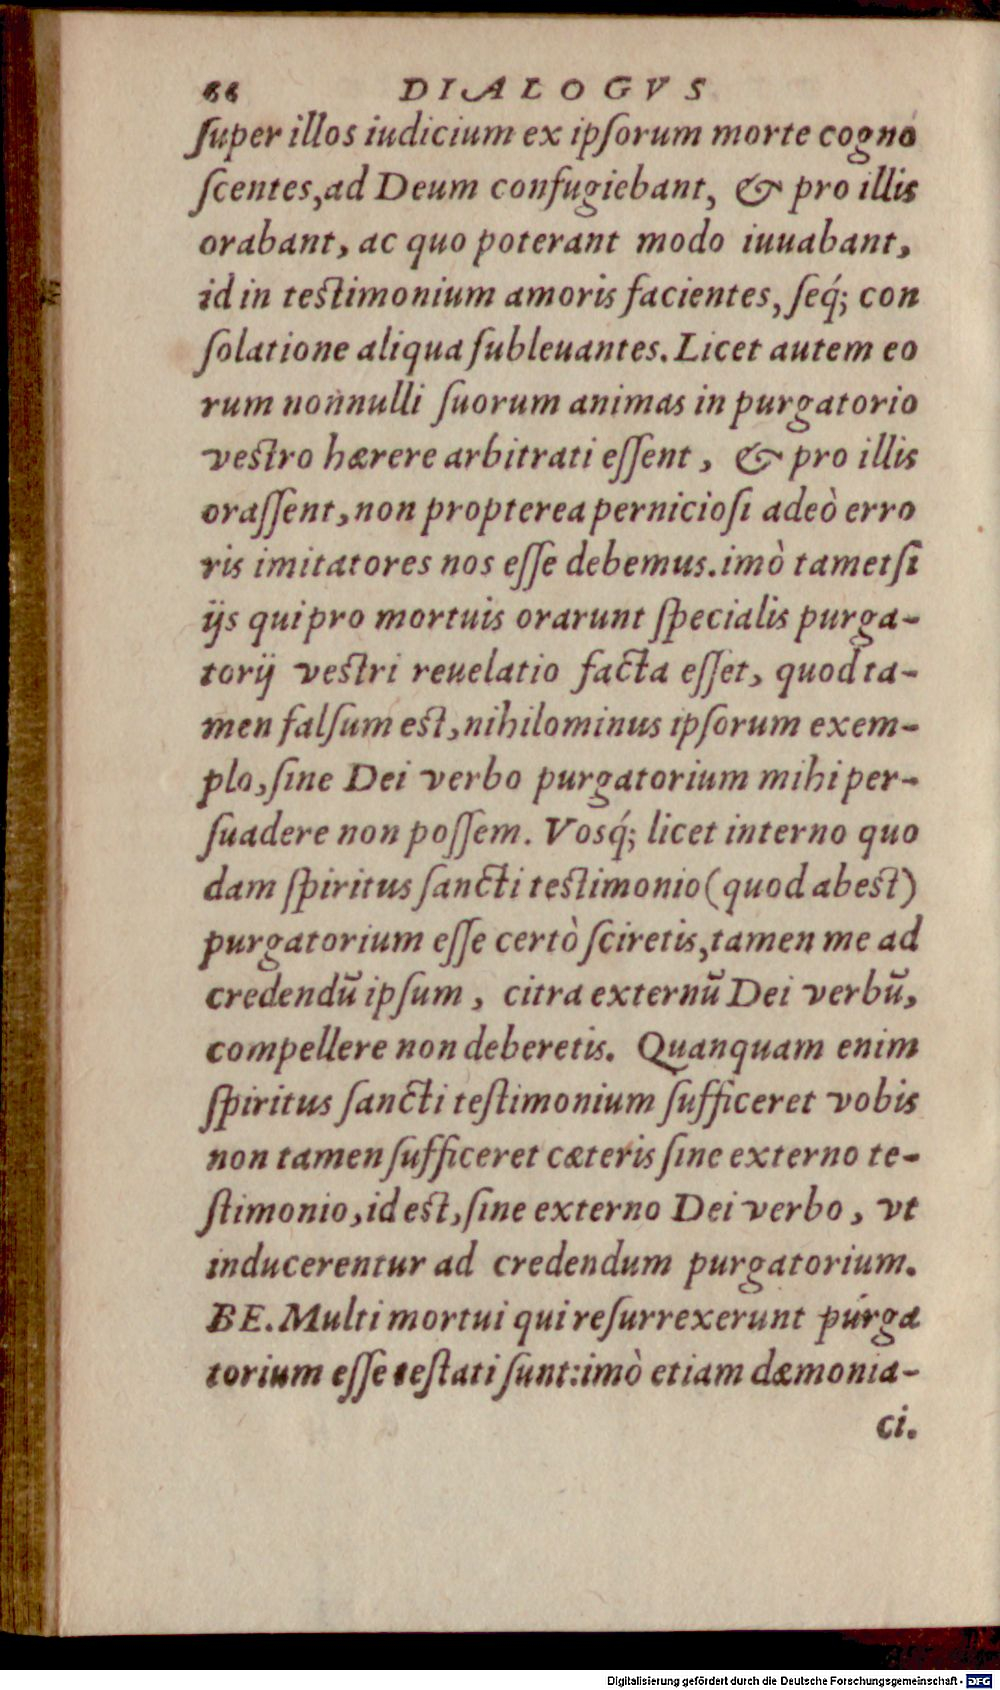 66 DIALOGVS
ſuper illos iudicium ex ipſorum morte cogno
ſcentes, ad Deum confugiebant, & pro illis
orabant, ac quo poterant modo iuuabant,
id in teſtimonium amoris facientes, ſeq́; con
ſolatione aliqua ſubleuantes. Licet autem eo
rum nonnulli ſuorum animas in purgatorio
veſtro hærere arbitrati eſſent, & pro illis
oraſſent, non propterea pernicioſi adeò erro
ris imitatores nos eſſe debemus. imò tametſi
ijs qui pro mortuis orarunt ſpecialis purga-
torij veſtri reuelatio facta eſſet, quod ta-
men falſum eſt, nihilominus ipſorum exem-
plo, ſine Dei verbo purgatorium mihi per-
ſuadere non poſſem. Vosq́; licet interno quo
dam ſpiritus ſancti teſtimonio (quod abeſt)
purgatorium eſſe certò ſciretis, tamen me ad
credendū ipſum, citra externū Dei verbū,
compellere non deberetis. Quanquam enim
ſpiritus ſancti teſtimonium ſufficeret vobis
non tamen ſufficeret cæteris ſine externo te-
ſtimonio, id eſt, ſine externo Dei verbo, vt
inducerentur ad credendum purgatorium.
BE. Multi mortui qui reſurrexerunt purga
torium eſſe teſtati ſunt: imò etiam dæmonia-
ci.
Digitalisierung gefördert durch die Deutsche Forschungsgemeinschaft - DFG